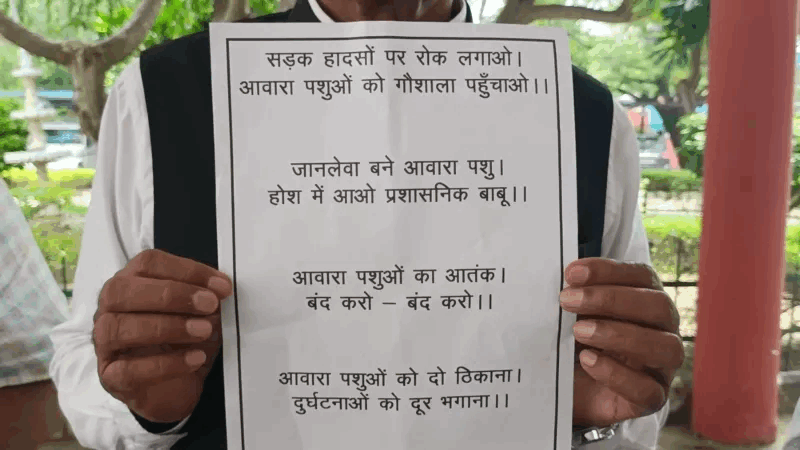 सड़क हादसों पर रोक लगाओ।
आवारा पशुओं को गौशाला पहुँचाओ।।
जानलेवा बने आवारा पशु।
होश में आओ प्रशासनिक बाबू।।
आवारा पशुओं का आतंक।
बंद करो – बंद करो।।
आवारा पशुओं को दो ठिकाना।
दुर्घटनाओं को दूर भगाना।।